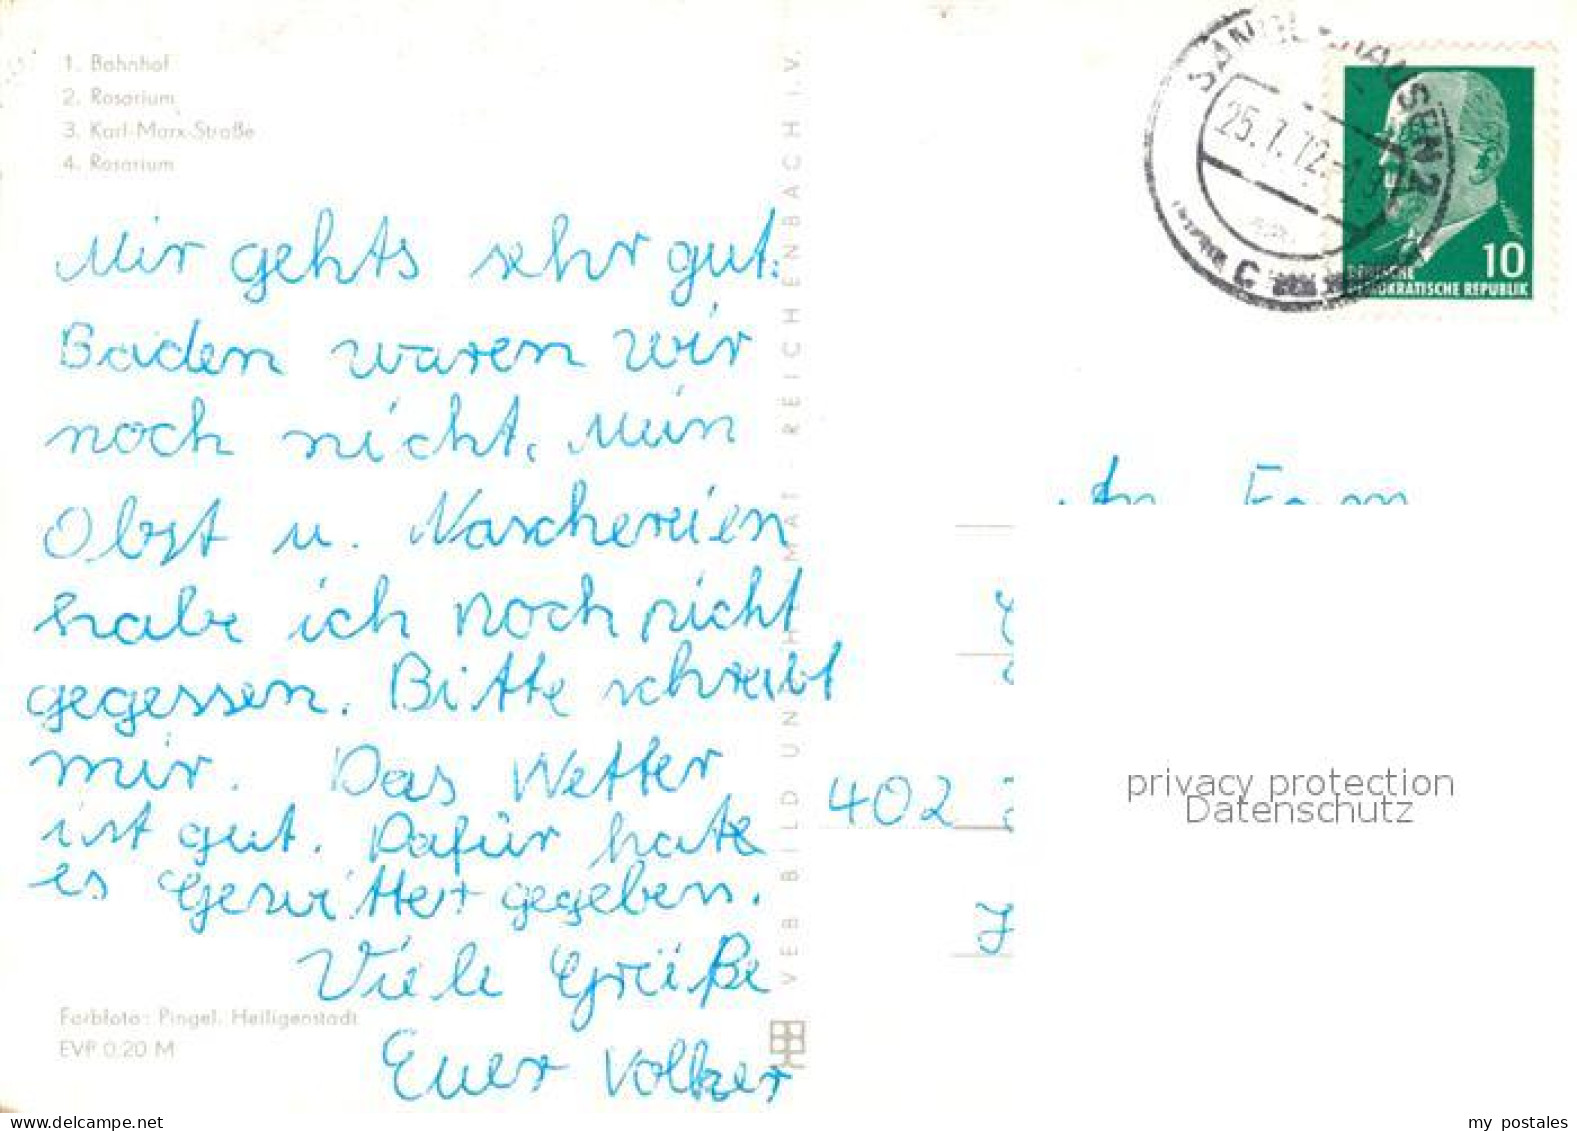 1. Bahnhof
2. Rosarium
3. Karl-Marx-Straße
4. Rosarium
Mir gehts sehr gut.
Baden waren wir
noch nicht. Mein
Obst u. Naschereien
habe ich noch nicht
gegessen. Bitte schreibt
mir. Das Wetter
ist gut. Dafür hat
es Gewitter gegeben.
Viele Grüße
Euer Volker
Farbfoto: Pingel, Heiligenstadt
EVP 0,20 M
VEB BILD UND HEIMAT REICHENBACH I.V.
SANGERHAUSEN 2
25.7.72.-19
C
10
DEUTSCHE
DEMOKRATISCHE REPUBLIK
An Fam
402
privacy protection
Datenschutz
www.delcampe.net
my postales